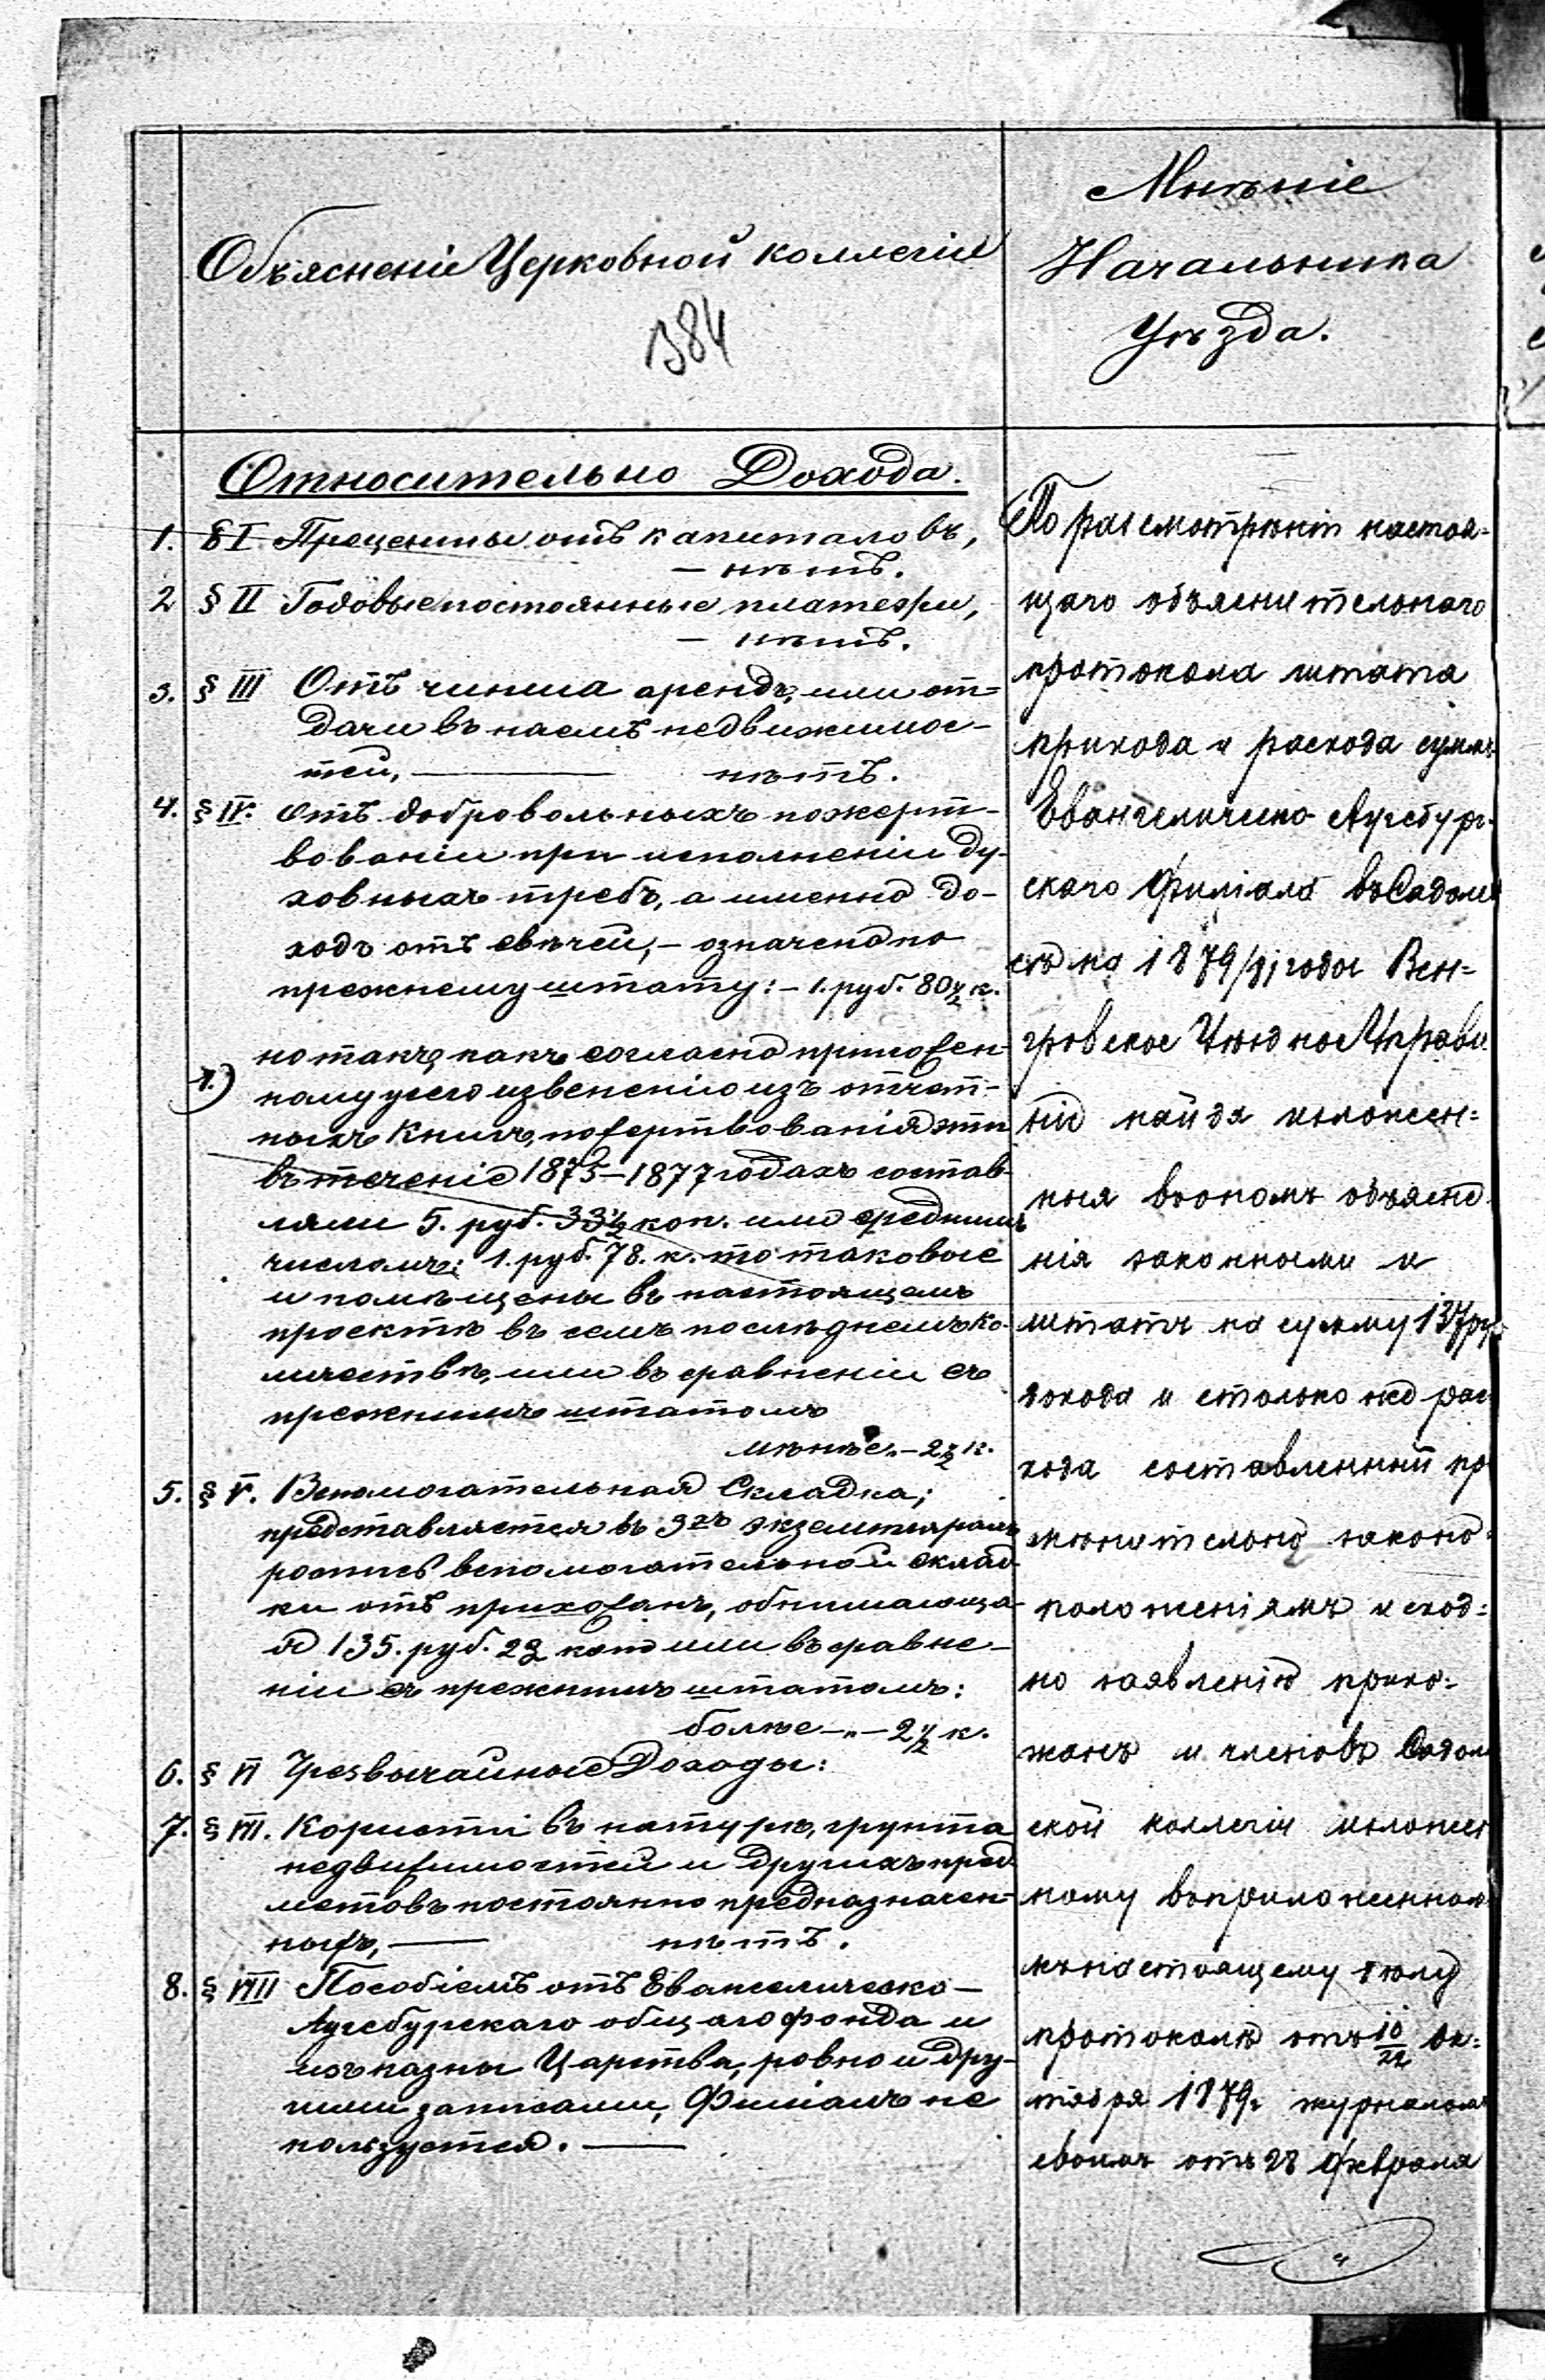 Объясненіе Церковной коллегіи
384
Мнѣніе
Начальника
Уѣзда.
Относительно Дохода.
1. § I Проценты отъ капиталовъ,
— нѣтъ.
2 § II Годовые постоянные платежи,
— нѣтъ.
3. § III Отъ чинша арендъ, или от=
дачи въ наемъ недвижимос-
тей, — нѣтъ.
4. § IV. Отъ добровольныхъ пожерт-
вованіи при исполненіи ду-
ховныхъ требъ, а именно до-
ходъ отъ свѣчей, – означено по
прежнему штату: – 1. руб. 80½ к.
но такъ какъ согласно приложен-
1.) ному у сего извлеченію изъ отчет-
ныхъ книгъ, пожертвованія эти
въ теченіе 1875–1877 годахъ состав-
ляли 5. руб. 33½ коп. или среднимъ
числомъ: 1. руб. 78. к. то таковые
и помѣщены въ настоящемъ
проектѣ въ семъ послѣднемъ ко-
личествѣ, или въ сравненіи съ
прежнимъ штатомъ
менѣе „ – 2½ к.
5. § V. Вспомогательная Складка;
представляется въ 3хъ экземплярахъ
роспись вспомогательной склад-
ки отъ прихожанъ, обнимающа-
я 135. руб. 22 коп или въ сравне-
ніи съ прежнимъ штатомъ:
болѣе – „ – 2½ к.
6. § VI Чрезвычайные Доходы:
7. § VII. Користи въ натурѣ, грунта
недвижимостей и другихъ пред
метовъ постоянно предназначен=
ныхъ, — нѣтъ.
8. § VIII Пособіемъ отъ Евангелическо –
Аугсбургскаго общаго фонда и
изъ казны Царства, ровно и дру-
гими записами, Филіалъ не
пользуется. —
По разсмотрѣніи настоя=
щаго объяснительнаго
протокола штата
прихода и расхода суммъ
Евангелическо Аугсбург-
скаго Филіала въ Садоле
на 1879/81 годы Вен=
гровское Уѣздное Управле
ніе найдя изложен=
ныя въ ономъ объясне
нія законными и
штатъ на сумму 137 ру
дохода и столько же рас
хода составленный при
мѣнительно законо=
положеніямъ и сход=
но заявленію прихо=
жанъ и членовъ Садол
ской коллегіи изложен
ному въ приложенномъ
къ настоящему дѣлу
протоколѣ отъ 10/22 Ок=
тября 1879 г. журналомъ
своимъ отъ 28 февраля